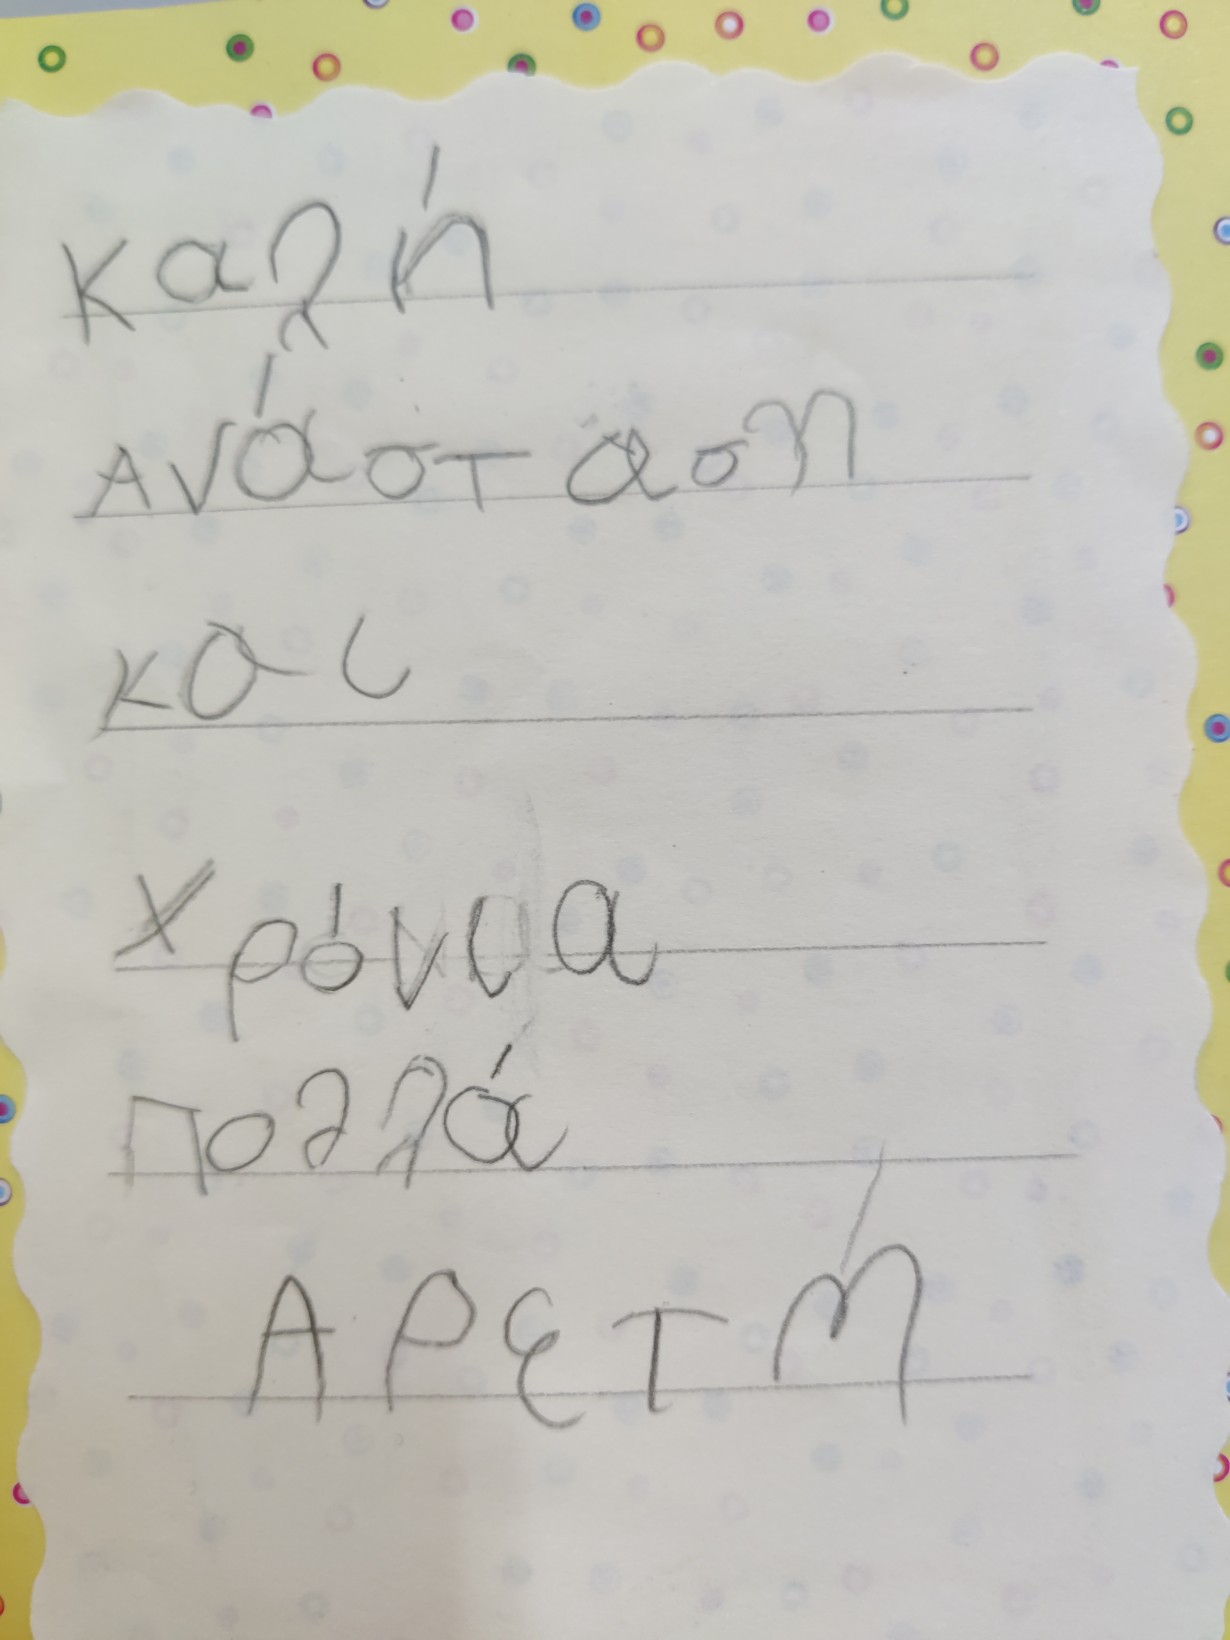 καλή
Ανάσταση
και
Χρόνια
πολλά
ΑΡΕΤή